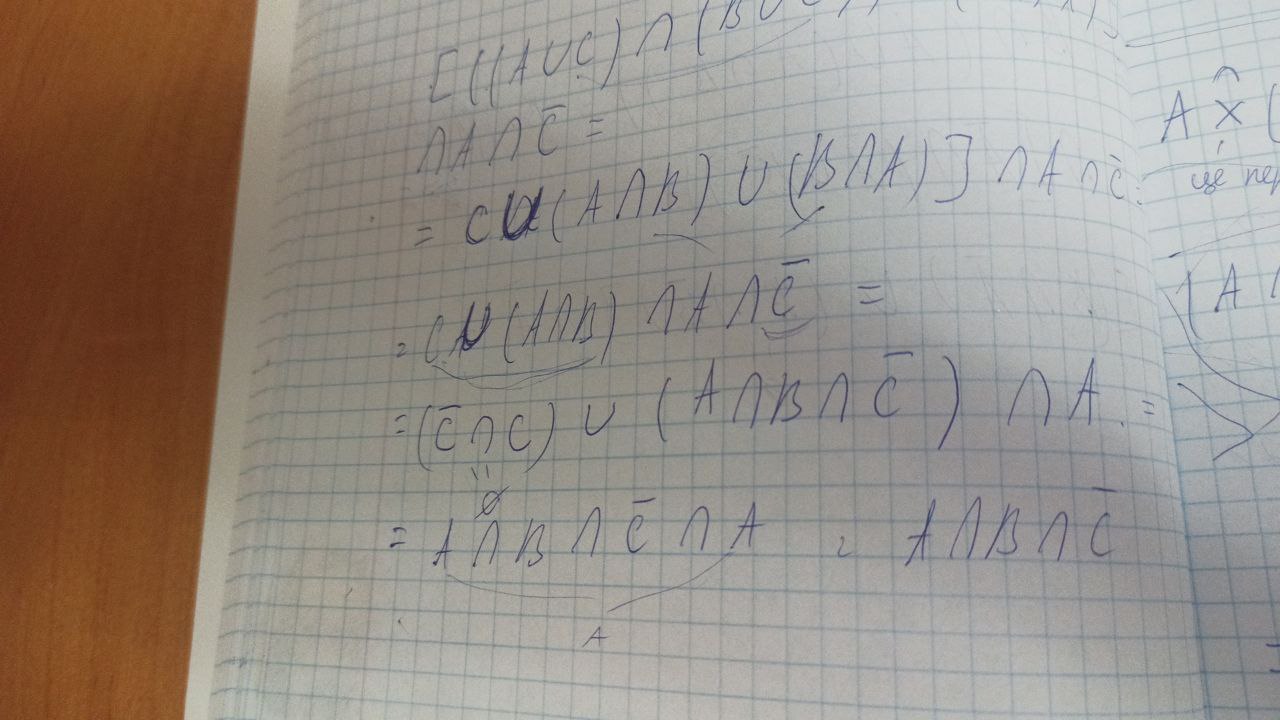 [((A∪C)∩(B∪C))
∩A∩C̅ =
= C∪(A∩B)∪(B∩A)]∩A∩C̅ =
= C∪(A∩B)∩A∩C̅ =
= (C̅∩C)∪(A∩B∩C̅)∩A =
"
∅
= A∩B∩C̅∩A = A∩B∩C̅
A
A × (
ще пер
(A ∩